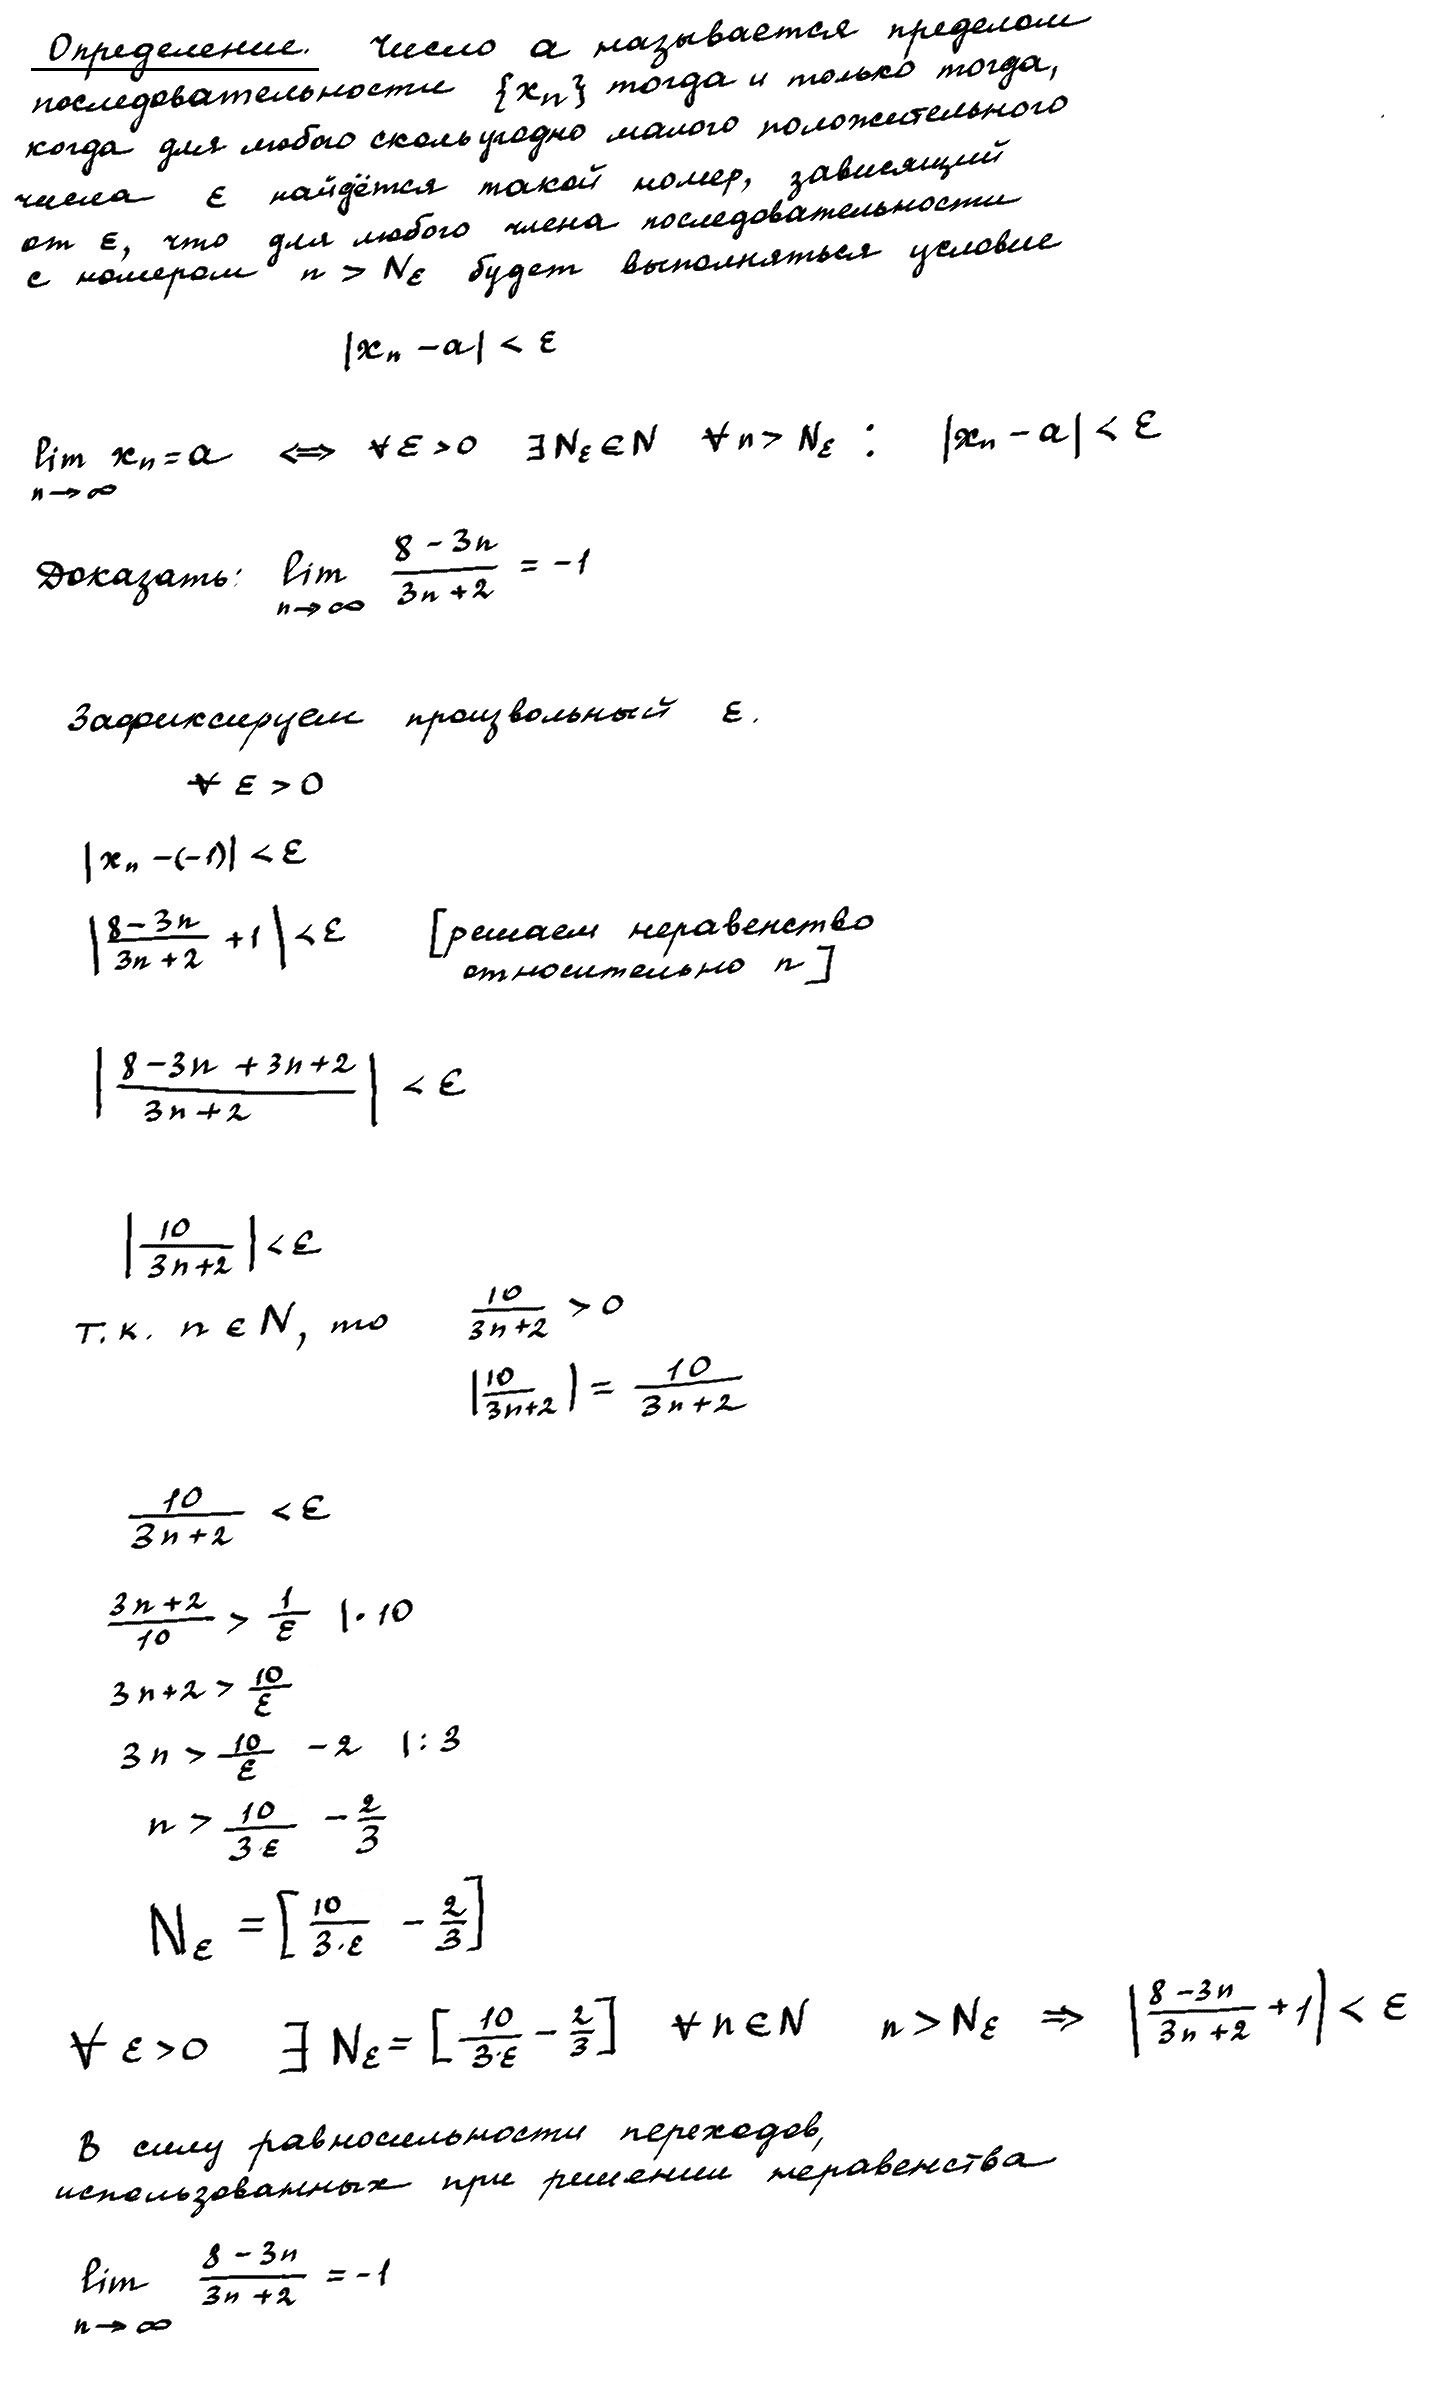 Определение. Число a называется пределом
последовательности {xₙ} тогда и только тогда,
когда для любого сколь угодно малого положительного
числа ε найдётся такой номер, зависящий
от ε, что для любого члена последовательности
с номером n > Nε будет выполняться условие
|xₙ - a| < ε
lim xₙ = a ⇔ ∀ ε > 0 ∃ Nε ∈ N ∀ n > Nε : |xₙ - a| < ε
n → ∞
Доказать: lim (8 - 3n)/(3n + 2) = -1
n → ∞
Зафиксируем произвольный ε.
∀ ε > 0
|xₙ - (-1)| < ε
|(8 - 3n)/(3n + 2) + 1| < ε [решаем неравенство
относительно n]
|(8 - 3n + 3n + 2)/(3n + 2)| < ε
|10/(3n + 2)| < ε
т.к. n ∈ N, то 10/(3n + 2) > 0
|10/(3n + 2)| = 10/(3n + 2)
10/(3n + 2) < ε
(3n + 2)/10 > 1/ε | · 10
3n + 2 > 10/ε
3n > 10/ε - 2 | : 3
n > 10/(3·ε) - 2/3
Nε = [10/(3·ε) - 2/3]
∀ ε > 0 ∃ Nε = [10/(3·ε) - 2/3] ∀ n ∈ N n > Nε ⇒ |(8 - 3n)/(3n + 2) + 1| < ε
В силу равносильности переходов,
использованных при решении неравенства
lim (8 - 3n)/(3n + 2) = -1
n → ∞